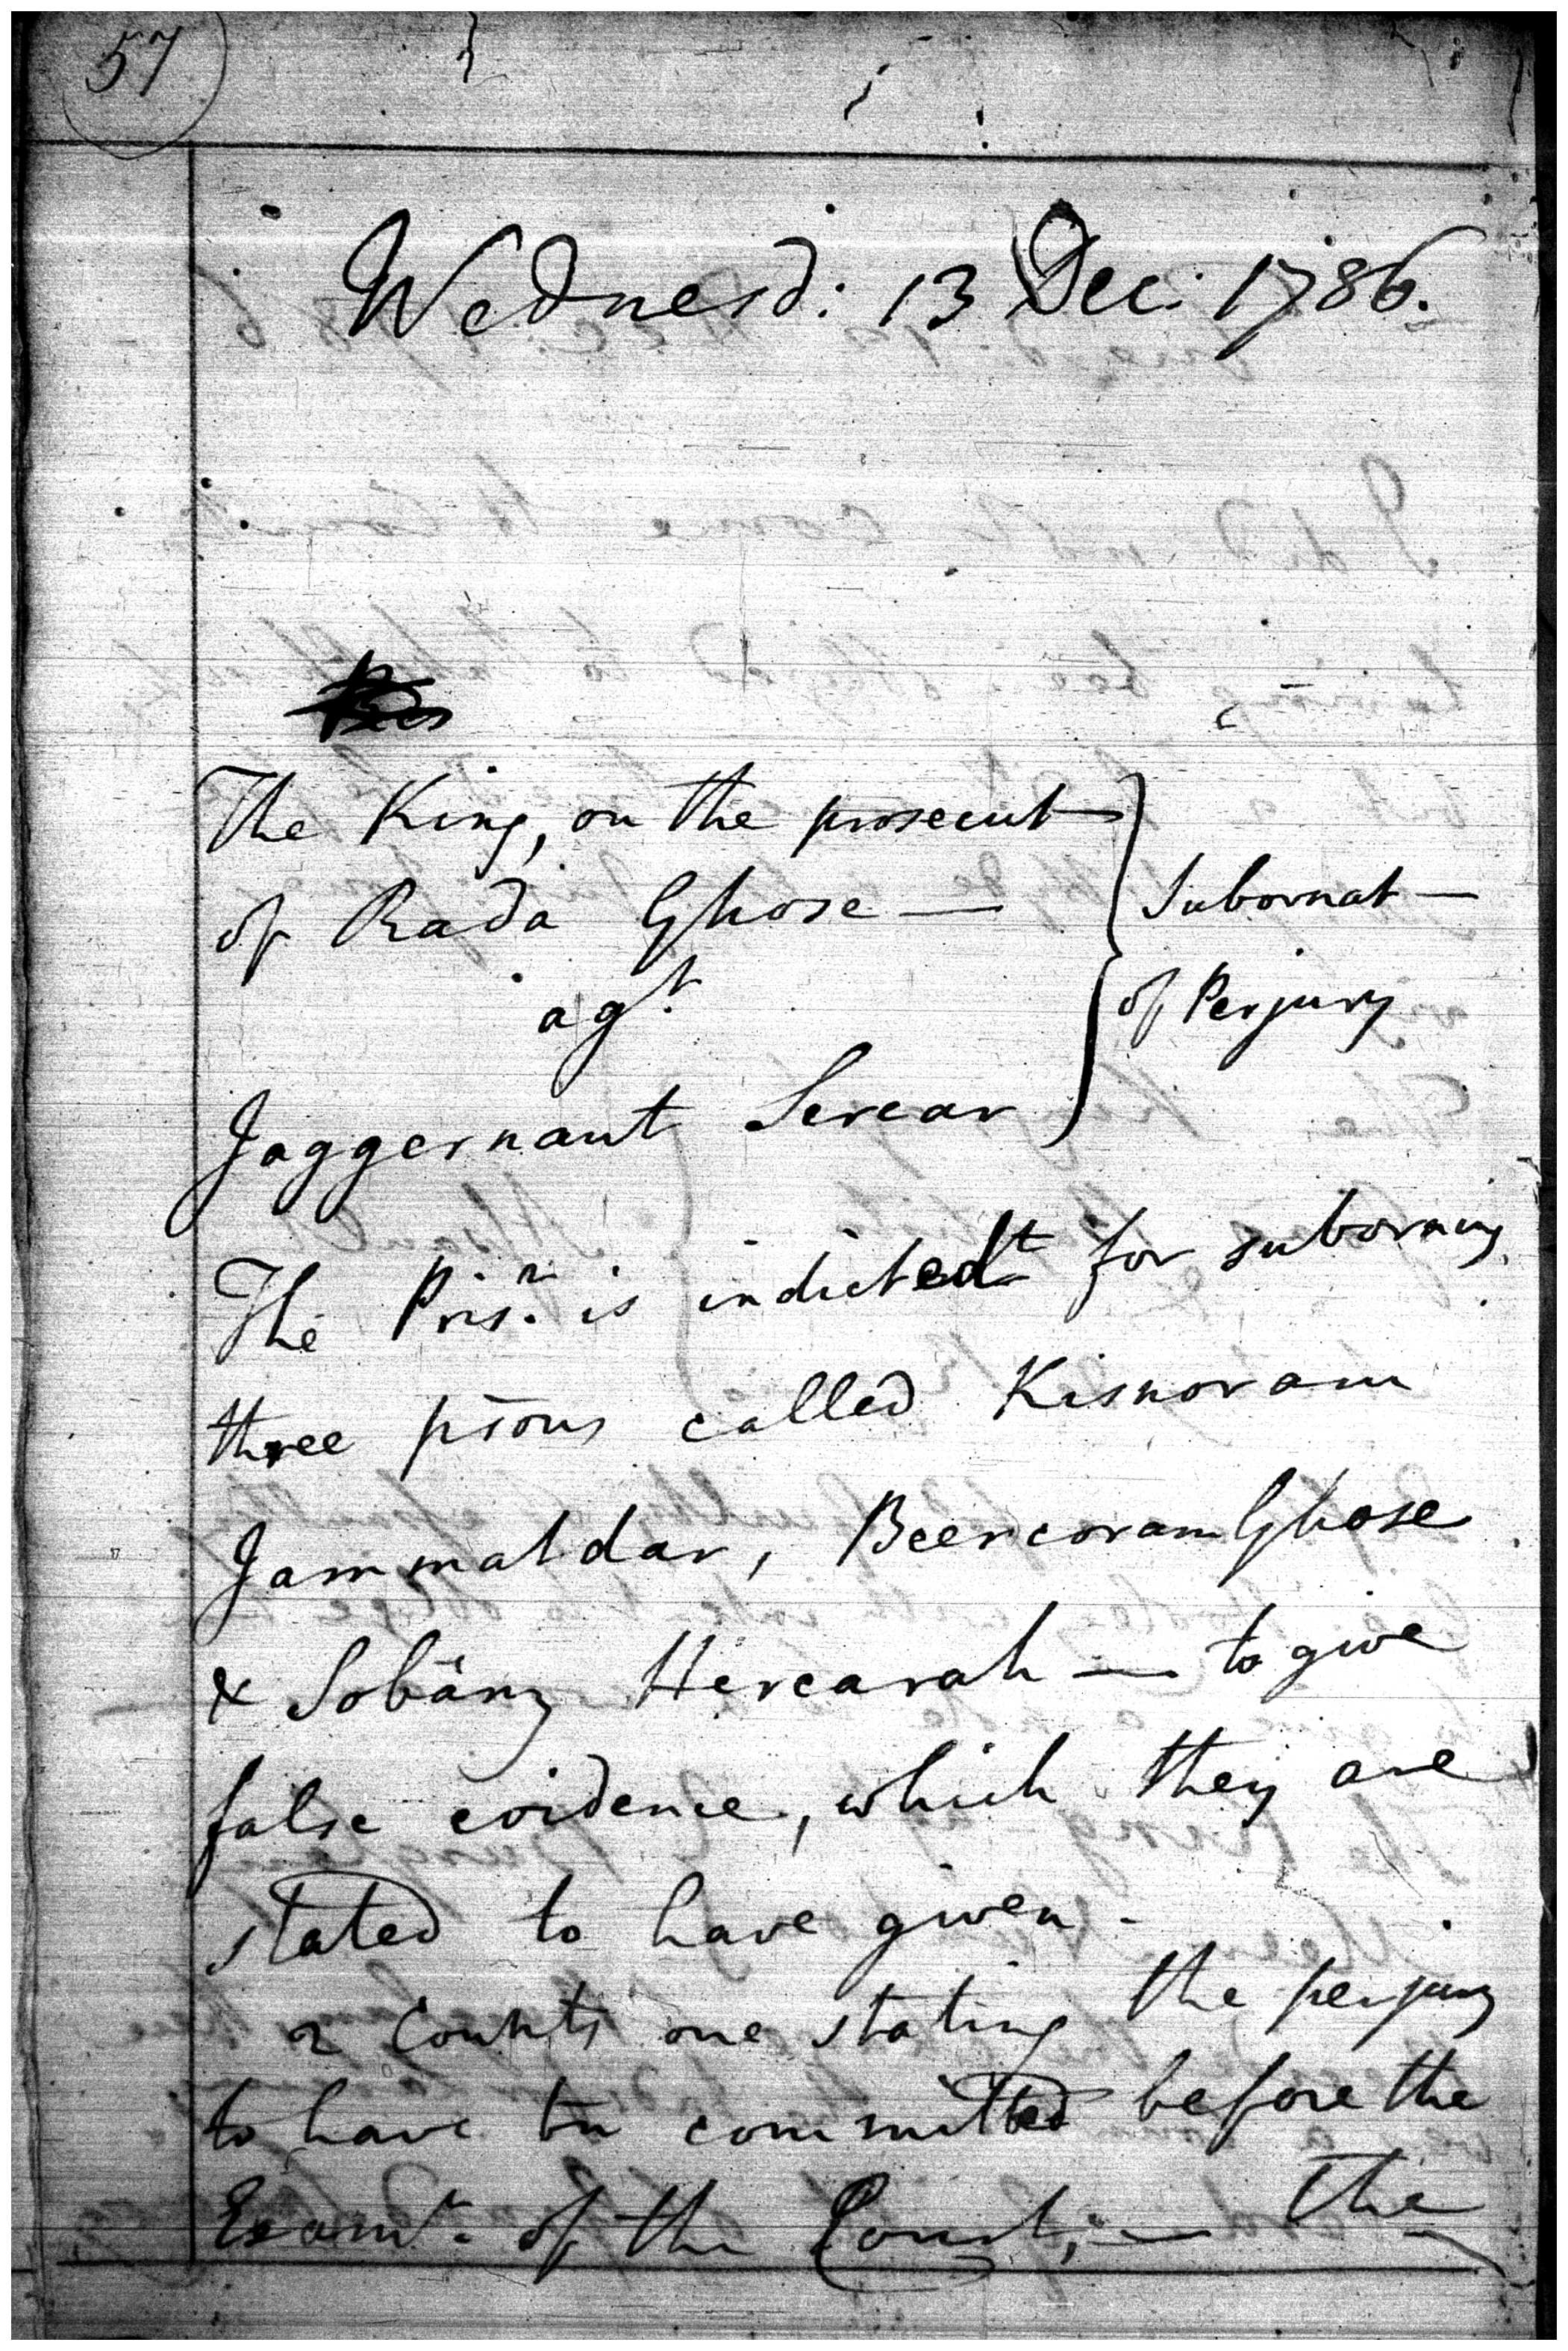 57
Wednesd: 13 Dec: 1786.
The King, on the prosecut—
of Rada Ghose —
agt.
Jaggernaut Sercar
Subornat—
of Perjury
The Prisr. is indicted for suborning
three psons called Kisnoram
Jammatdar, Beercoram Ghose
& Sobâny Hercarah — to give
false evidence, which they are
stated to have given.
2 Counts one stating the perjury
to have bn committed before the
Examr. of the Court; — The